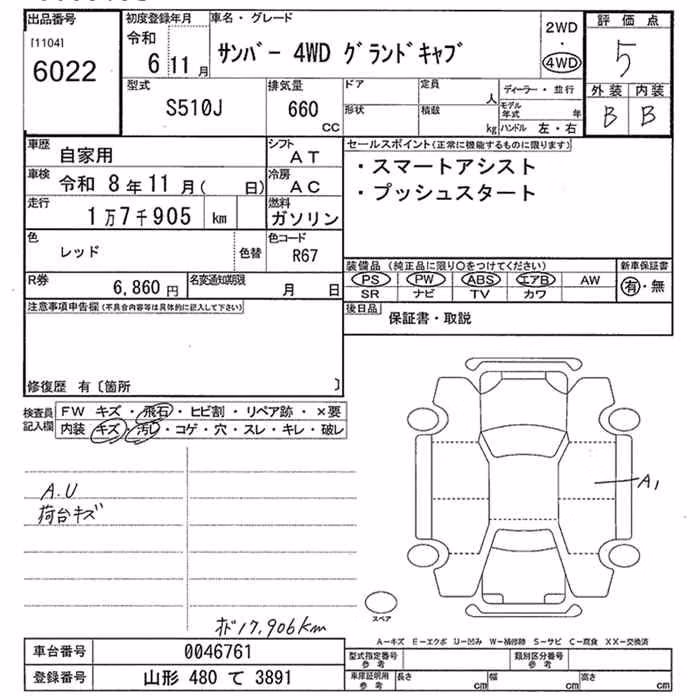 出品番号
[1104]
6022
初度登録年月
令和
6 11 月
車名・グレード
サンバー 4WD グランドキャブ
2WD
・
4WD
評価点
5
外装 内装
B B
型式
S510J
排気量
660
cc
ドア
形状
定員
人
積載
kg
ディーラー・並行
モデル年式 年
ハンドル 左・右
車歴
自家用
シフト
AT
車検
令和 8年11月( 日)
冷房
AC
走行
1万7千905 km
燃料
ガソリン
色
レッド
色替
色コード
R67
R券
6,860 円
名変通知期限
月 日
セールスポイント(正常に機能するものに限ります)
・スマートアシスト
・プッシュスタート
装備品 (純正品に限り○をつけてください)
新車保証書
PS PW ABS エアB AW
有・無
SR ナビ TV カワ
後日品
保証書・取説
注意事項申告欄(不具合内容等は具体的に記入して下さい)
修復歴 有〔箇所 〕
検査員記入欄
FW キズ・飛石・ヒビ割・リペア跡・×要
内装 キズ・汚レ・コゲ・穴・スレ・キレ・破レ
A.U
荷台キズ
A1
スペア
メーター 17,906km
A-キズ E-エクボ U-凹み W-補修跡 S-サビ C-腐食 XX-交換済
車台番号
0046761
登録番号
山形 480 て 3891
型式指定番号
参考
類別区分番号
参考
車庫証明用
参考
長さ cm
幅 cm
高さ cm